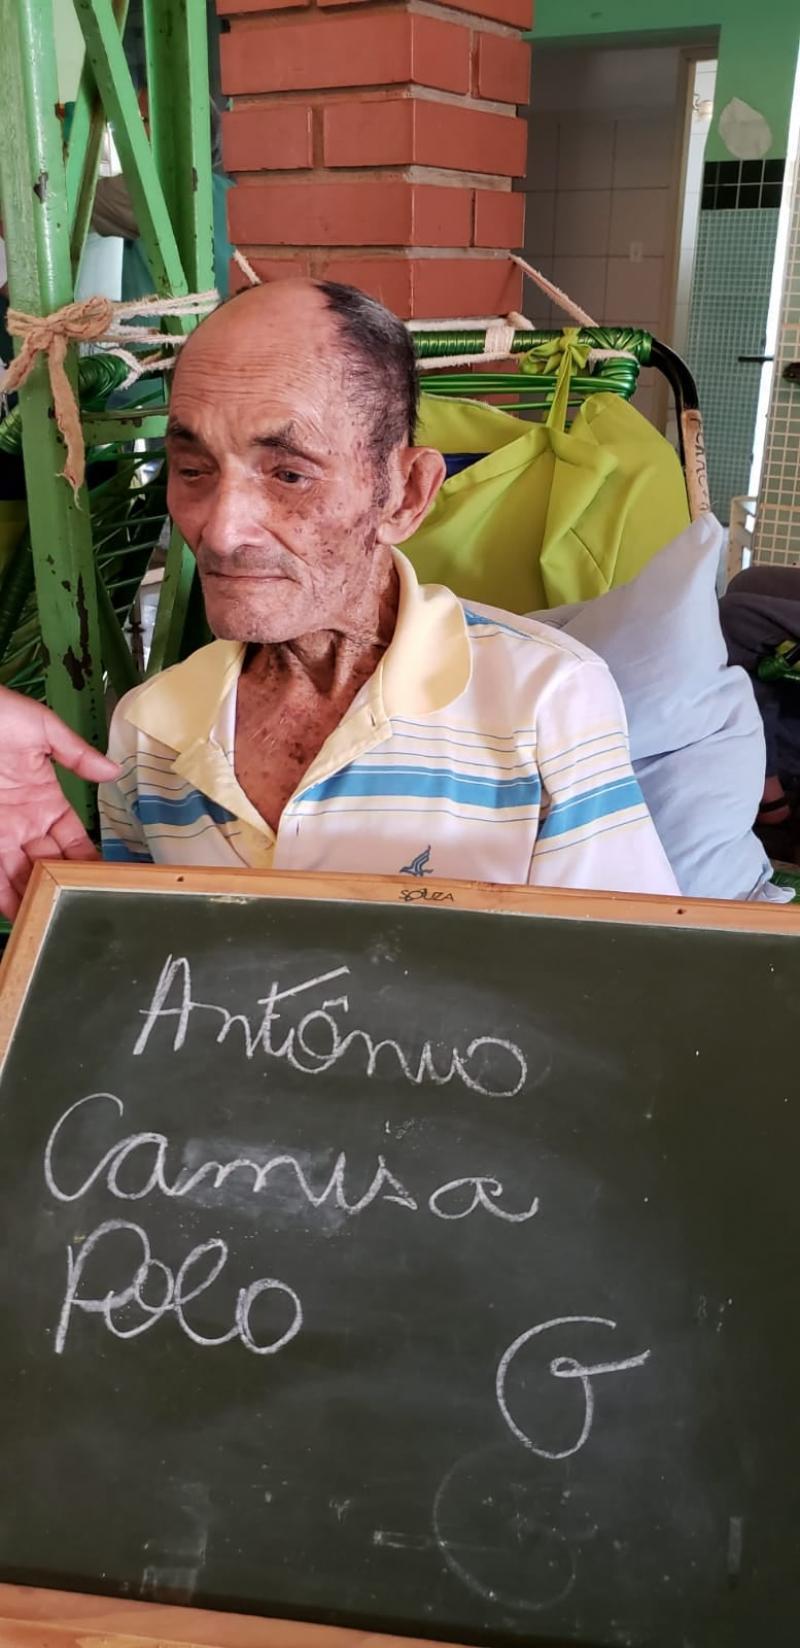 SOUZA
Antônio
Camisa
Polo
G